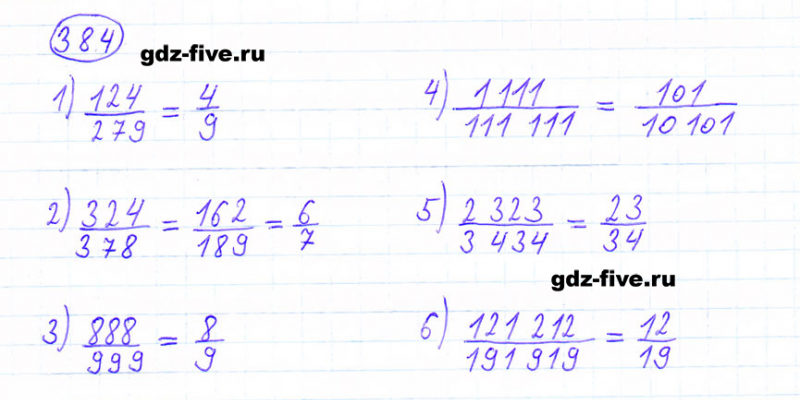 384
gdz-five.ru
1) 124/279 = 4/9
2) 324/378 = 162/189 = 6/7
3) 888/999 = 8/9
4) 1 111/111 111 = 101/10 101
5) 2 323/3 434 = 23/34
gdz-five.ru
6) 121 212/191 919 = 12/19